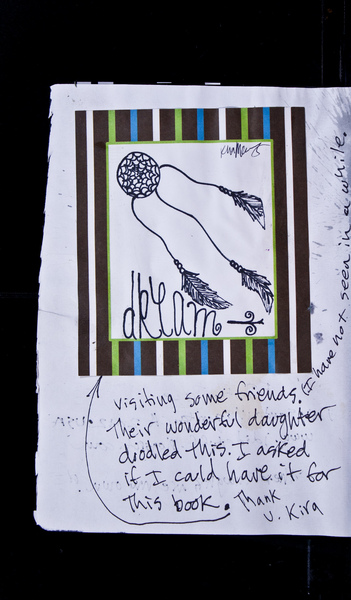 dream
visiting some friends. (I have not seen in a while.
Their wonderful daughter
diodled this. I asked
if I could have it for
this book. Thank
U. Kira